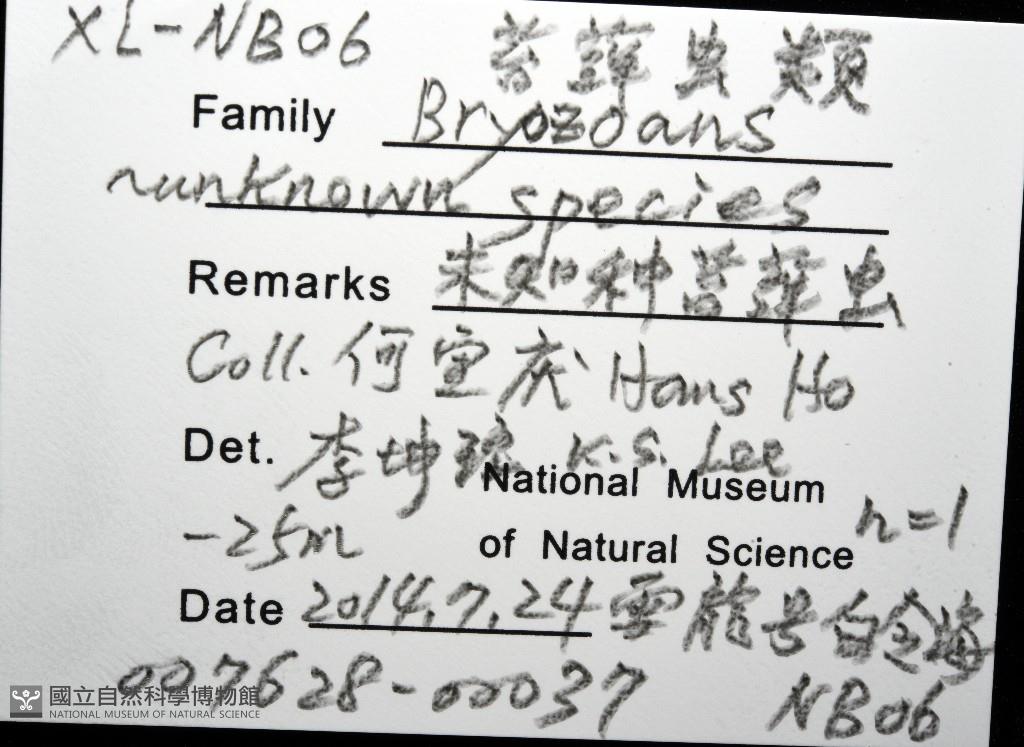 XL-NB06 苔蘚虫類
Family Bryozoans
unknown species
Remarks 未知种苔蘚虫
Coll. 何宣庆 Hans Ho
Det. 李坤瑄 K.S. Lee
National Museum
-25m of Natural Science n=1
Date 2014.7.24 雪龍号白令海
007628-00037 NB06
國立自然科學博物館
NATIONAL MUSEUM OF NATURAL SCIENCE